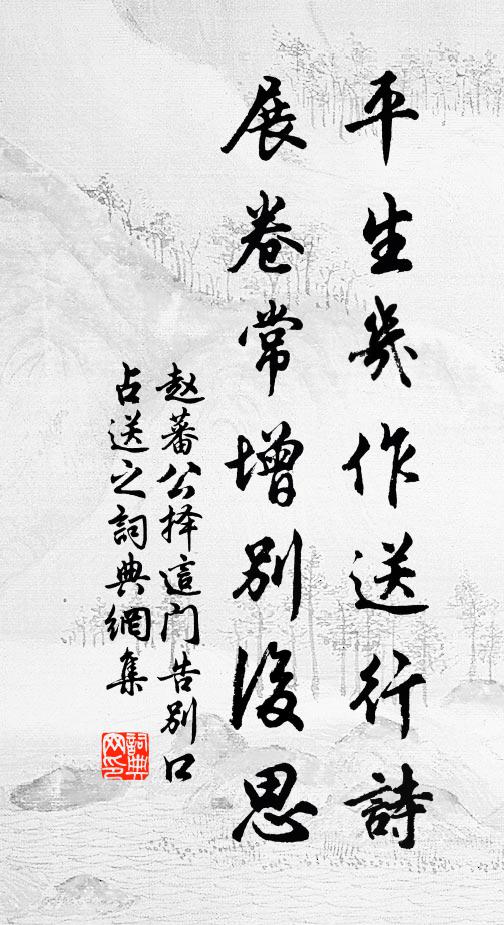 平生幾作送行詩
展卷常增別後思
赵蕃公择這门告别口
占送之詞典網集
詞典網印